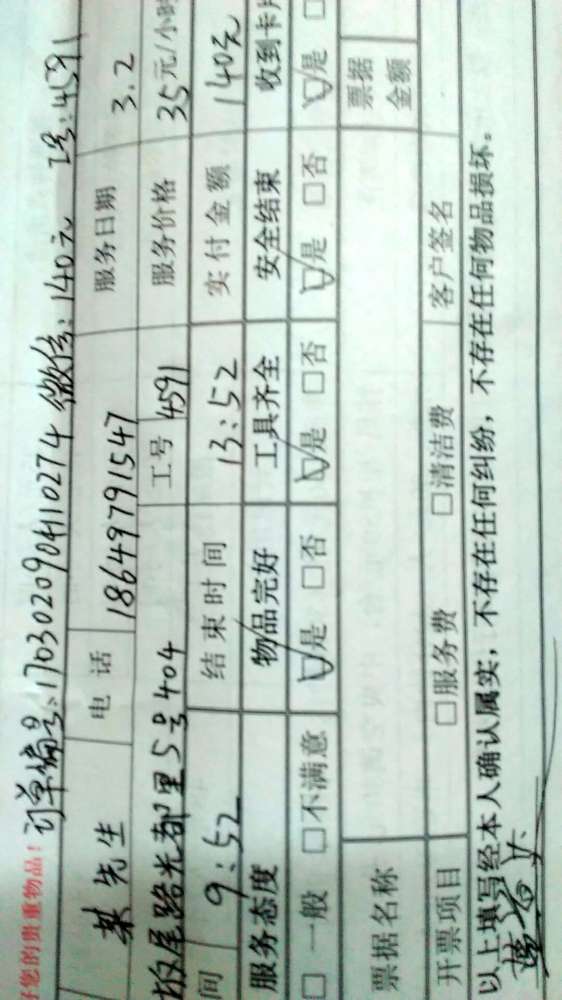 好您的贵重物品！ 订单编号：1703020904110274 微信：140元 工号：4591
某先生 电话 18649791547 服务日期 3.2
坂尾路光都里5号404 工号 4591 服务价格 35元/小时
间 9:52 结束时间 13:52 实付金额 140元
服务态度 物品完好 工具齐全 安全结束 收到卡片
□ 一般 □不满意 ☑是 □否 ☑是 □否 ☑是 □否 ☑是 □
票据名称 票据金额
开票项目 □服务费 □清洁费 客户签名
以上填写经本人确认属实，不存在任何纠纷，不存在任何物品损坏。